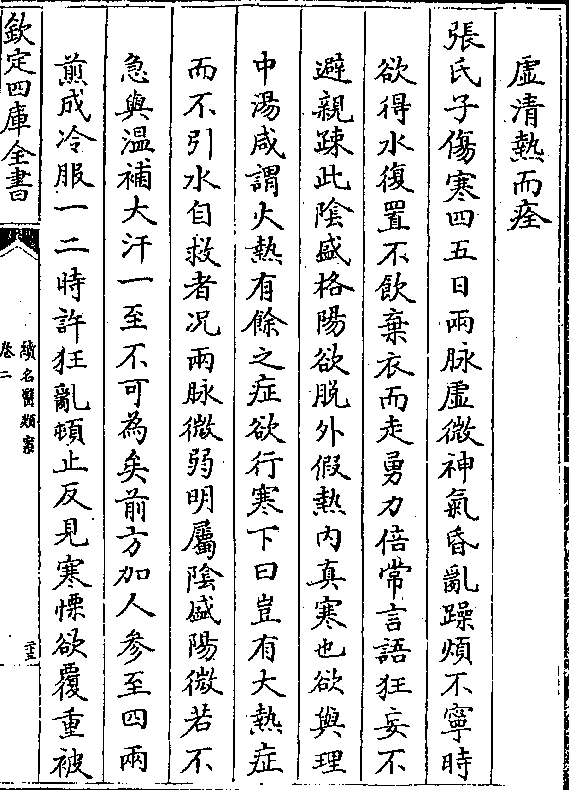 虛清熱而痊
張氏子傷寒四五日兩脉虛微神氣昏亂躁煩不寧時
欲得水復置不飲棄衣而走勇力倍常言語狂妄不
避親踈此陰盛格陽欲脱外假熱内真寒也欲與理
中湯咸謂火熱有餘之症欲行寒下曰豈有大熱症
而不引水自救者况兩脉微弱明屬陰盛陽微若不
急與温補大汗一至不可為矣前方加人參至四兩
煎成冷服一二時許狂亂頓止反見寒慄欲覆重被
欽定四庫全書
續名醫類案
卷二